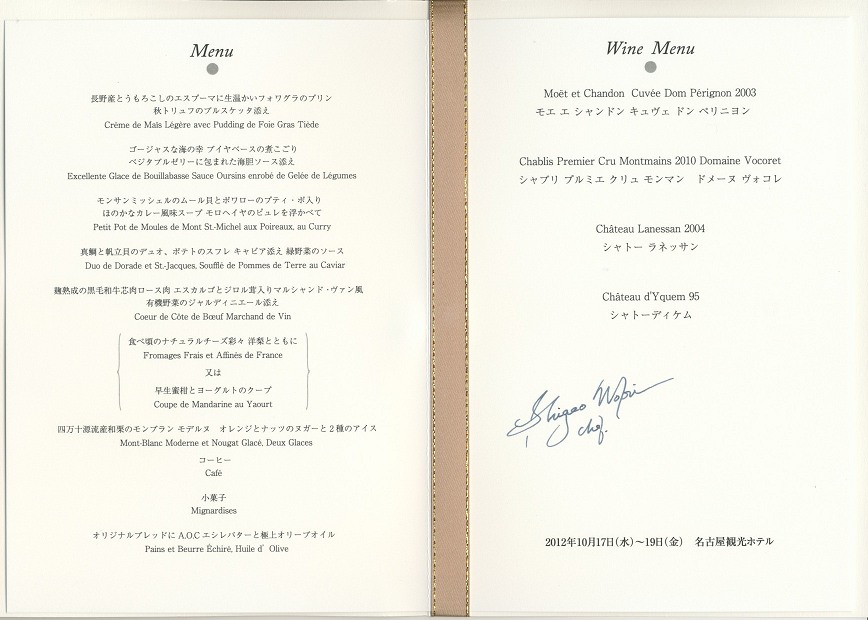 Menu
長野産とうもろこしのエスプーマに生温かいフォワグラのプリン
秋トリュフのブルスケッタ添え
Crème de Maïs Légère avec Pudding de Foie Gras Tiède
ゴージャスな海の幸 ブイヤベースの煮こごり
ベジタブルゼリーに包まれた海胆ソース添え
Excellente Glace de Bouillabasse Sauce Oursins enrobé de Gelée de Légumes
モンサンミッシェルのムール貝とポワローのプティ・ポ入り
ほのかなカレー風味スープ モロヘイヤのピュレを浮かべて
Petit Pot de Moules de Mont St.-Michel aux Poireaux, au Curry
真鯛と帆立貝のデュオ、ポテトのスフレ キャビア添え 緑野菜のソース
Duo de Dorade et St.-Jacques, Soufflé de Pommes de Terre au Caviar
麹熟成の黒毛和牛芯肉ロース肉 エスカルゴとジロル茸入りマルシャンド・ヴァン風
有機野菜のジャルディニエール添え
Coeur de Côte de Bœuf Marchand de Vin
食べ頃のナチュラルチーズ彩々 洋梨とともに
Fromages Frais et Affinés de France
又は
早生蜜柑とヨーグルトのクープ
Coupe de Mandarine au Yaourt
四万十源流産和栗のモンブラン モデルヌ オレンジとナッツのヌガーと2種のアイス
Mont-Blanc Moderne et Nougat Glacé, Deux Glaces
コーヒー
Café
小菓子
Mignardises
オリジナルブレッドに A.O.C エシレバターと極上オリーブオイル
Pains et Beurre Échiré, Huile d' Olive
Wine Menu
Moët et Chandon Cuvée Dom Pérignon 2003
モエ エ シャンドン キュヴェ ドン ペリニヨン
Chablis Premier Cru Montmains 2010 Domaine Vocoret
シャブリ プルミエ クリュ モンマン ドメーヌ ヴォコレ
Château Lanessan 2004
シャトー ラネッサン
Château d'Yquem 95
シャトーディケム
Shigeo
chef.
2012年10月17日(水)～19日(金) 名古屋観光ホテル